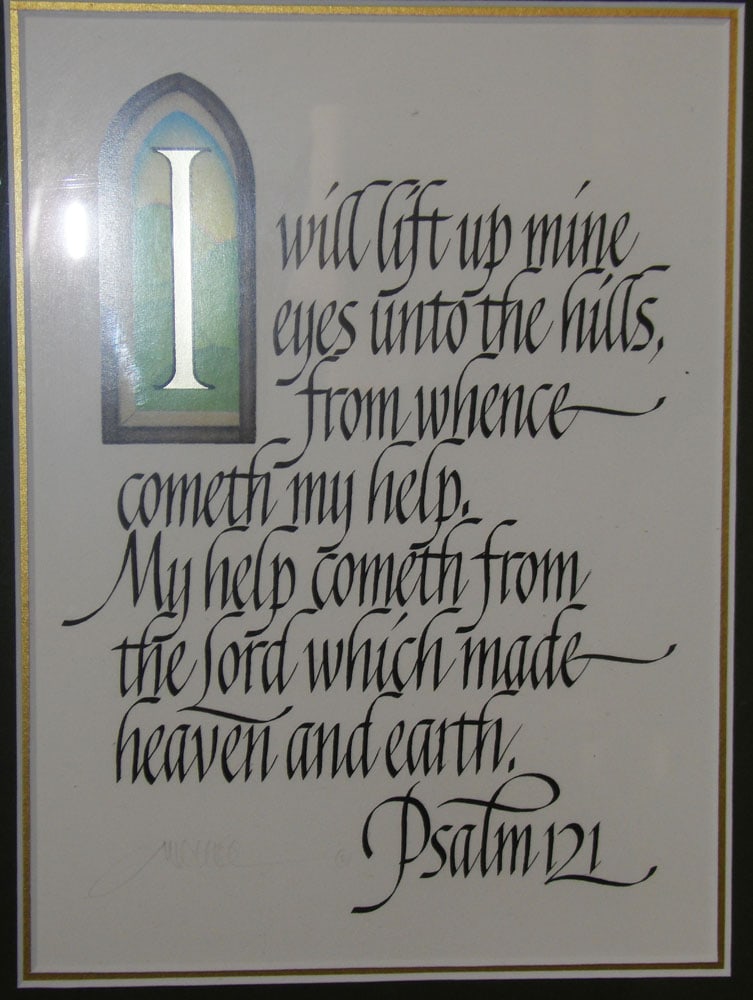 I will lift up mine
eyes unto the hills,
from whence
cometh my help.
My help cometh from
the Lord which made
heaven and earth.
Psalm 121
©